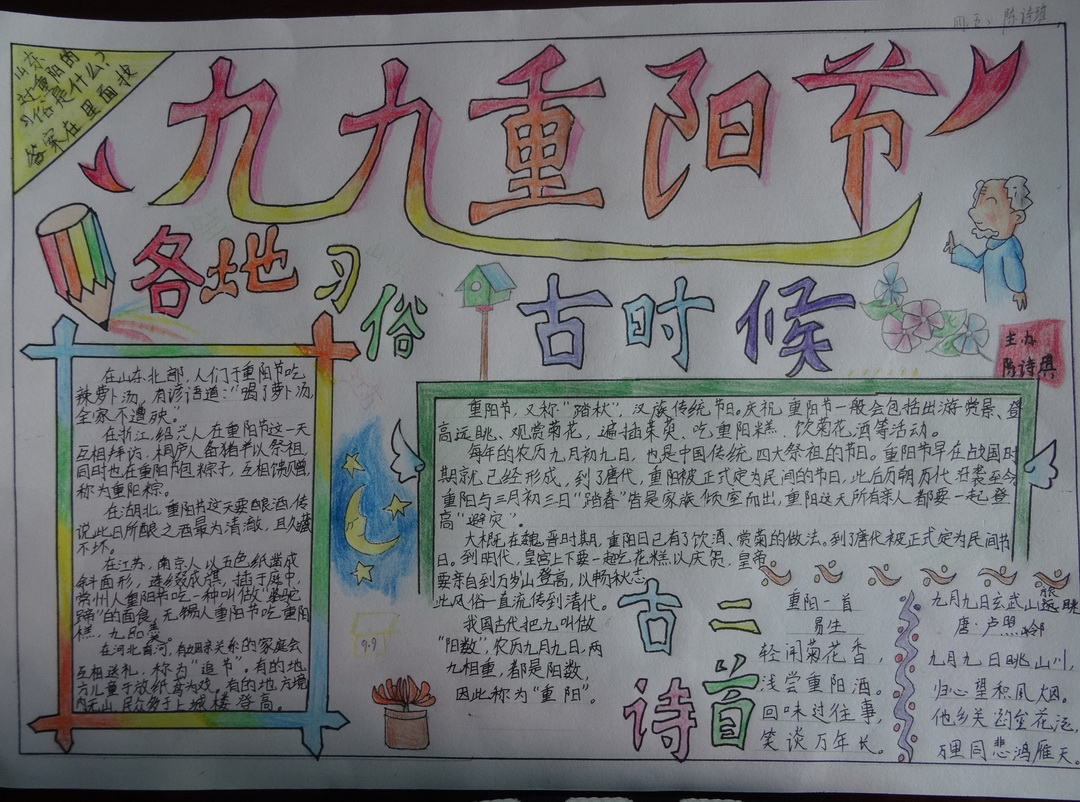 四五、陈诗琪
山东
对重阳的
习俗是什么？
答案在里面找
九九重阳节
各地习俗
古时候
主办
陈诗琪
在山东北部，人们于重阳节吃
辣萝卜汤。有谚语道："喝了萝卜汤，
全家不遭殃。"
在浙江，绍兴人在重阳节这一天
互相拜访，桐庐人备猪羊以祭祖，
同时也在重阳节包粽子，互相馈赠，
称为重阳粽。
在湖北，重阳节这天要酿酒，传
说此日所酿之酒最为清澈，且久藏
不坏。
在江苏，南京人以五色纸凿成
斜面形，连缀成旗，插于庭中，
常州人重阳节吃一种叫做"骆驼
蹄"的面食。无锡人重阳节吃重阳
糕，九品羹。
在河北香河，有姻亲关系的家庭会
互相送礼，称为"追节"，有的地
方儿童于放纸鸢为戏。有的地方境
内无山，民众多于上城楼登高。
重阳节，又称"踏秋"，汉族传统节日。庆祝重阳节一般会包括出游赏景、登
高远眺、观赏菊花，遍插茱萸、吃重阳糕、饮菊花酒等活动。
每年的农历九月初九日，也是中国传统四大祭祖的节日。重阳节早在战国时
期就已经形成，到了唐代，重阳被正式定为民间的节日，此后历朝历代沿袭至今
重阳与三月初三日"踏春"皆是家族倾室而出，重阳这天所有亲人都要一起登
高"避灾"。
大概在魏晋时期，重阳日已有了饮酒、赏菊的做法。到了唐代被正式定为民间节
日。到明代，皇宫上下要一起吃花糕以庆贺，皇帝
要亲自到万岁山登高，以畅秋志
此风俗一直流传到清代。
我国古代把九叫做
"阳数"，农历九月九日，两
九相重，都是阳数，
因此称为"重阳"。
9.9
古诗二首
重阳一首
易生
轻闻菊花香，
浅尝重阳酒。
回味过往事，
笑谈万年长。
九月九日玄武山旅远眺
唐·卢照邻
九月九日眺山川，
归心望积风烟。
他乡共酌金花酒，
万里同悲鸿雁天。